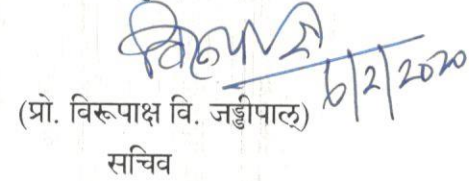 विरूपाक्ष
6/2/2020
(प्रो. विरूपाक्ष वि. जड्डीपाल्)
सचिव